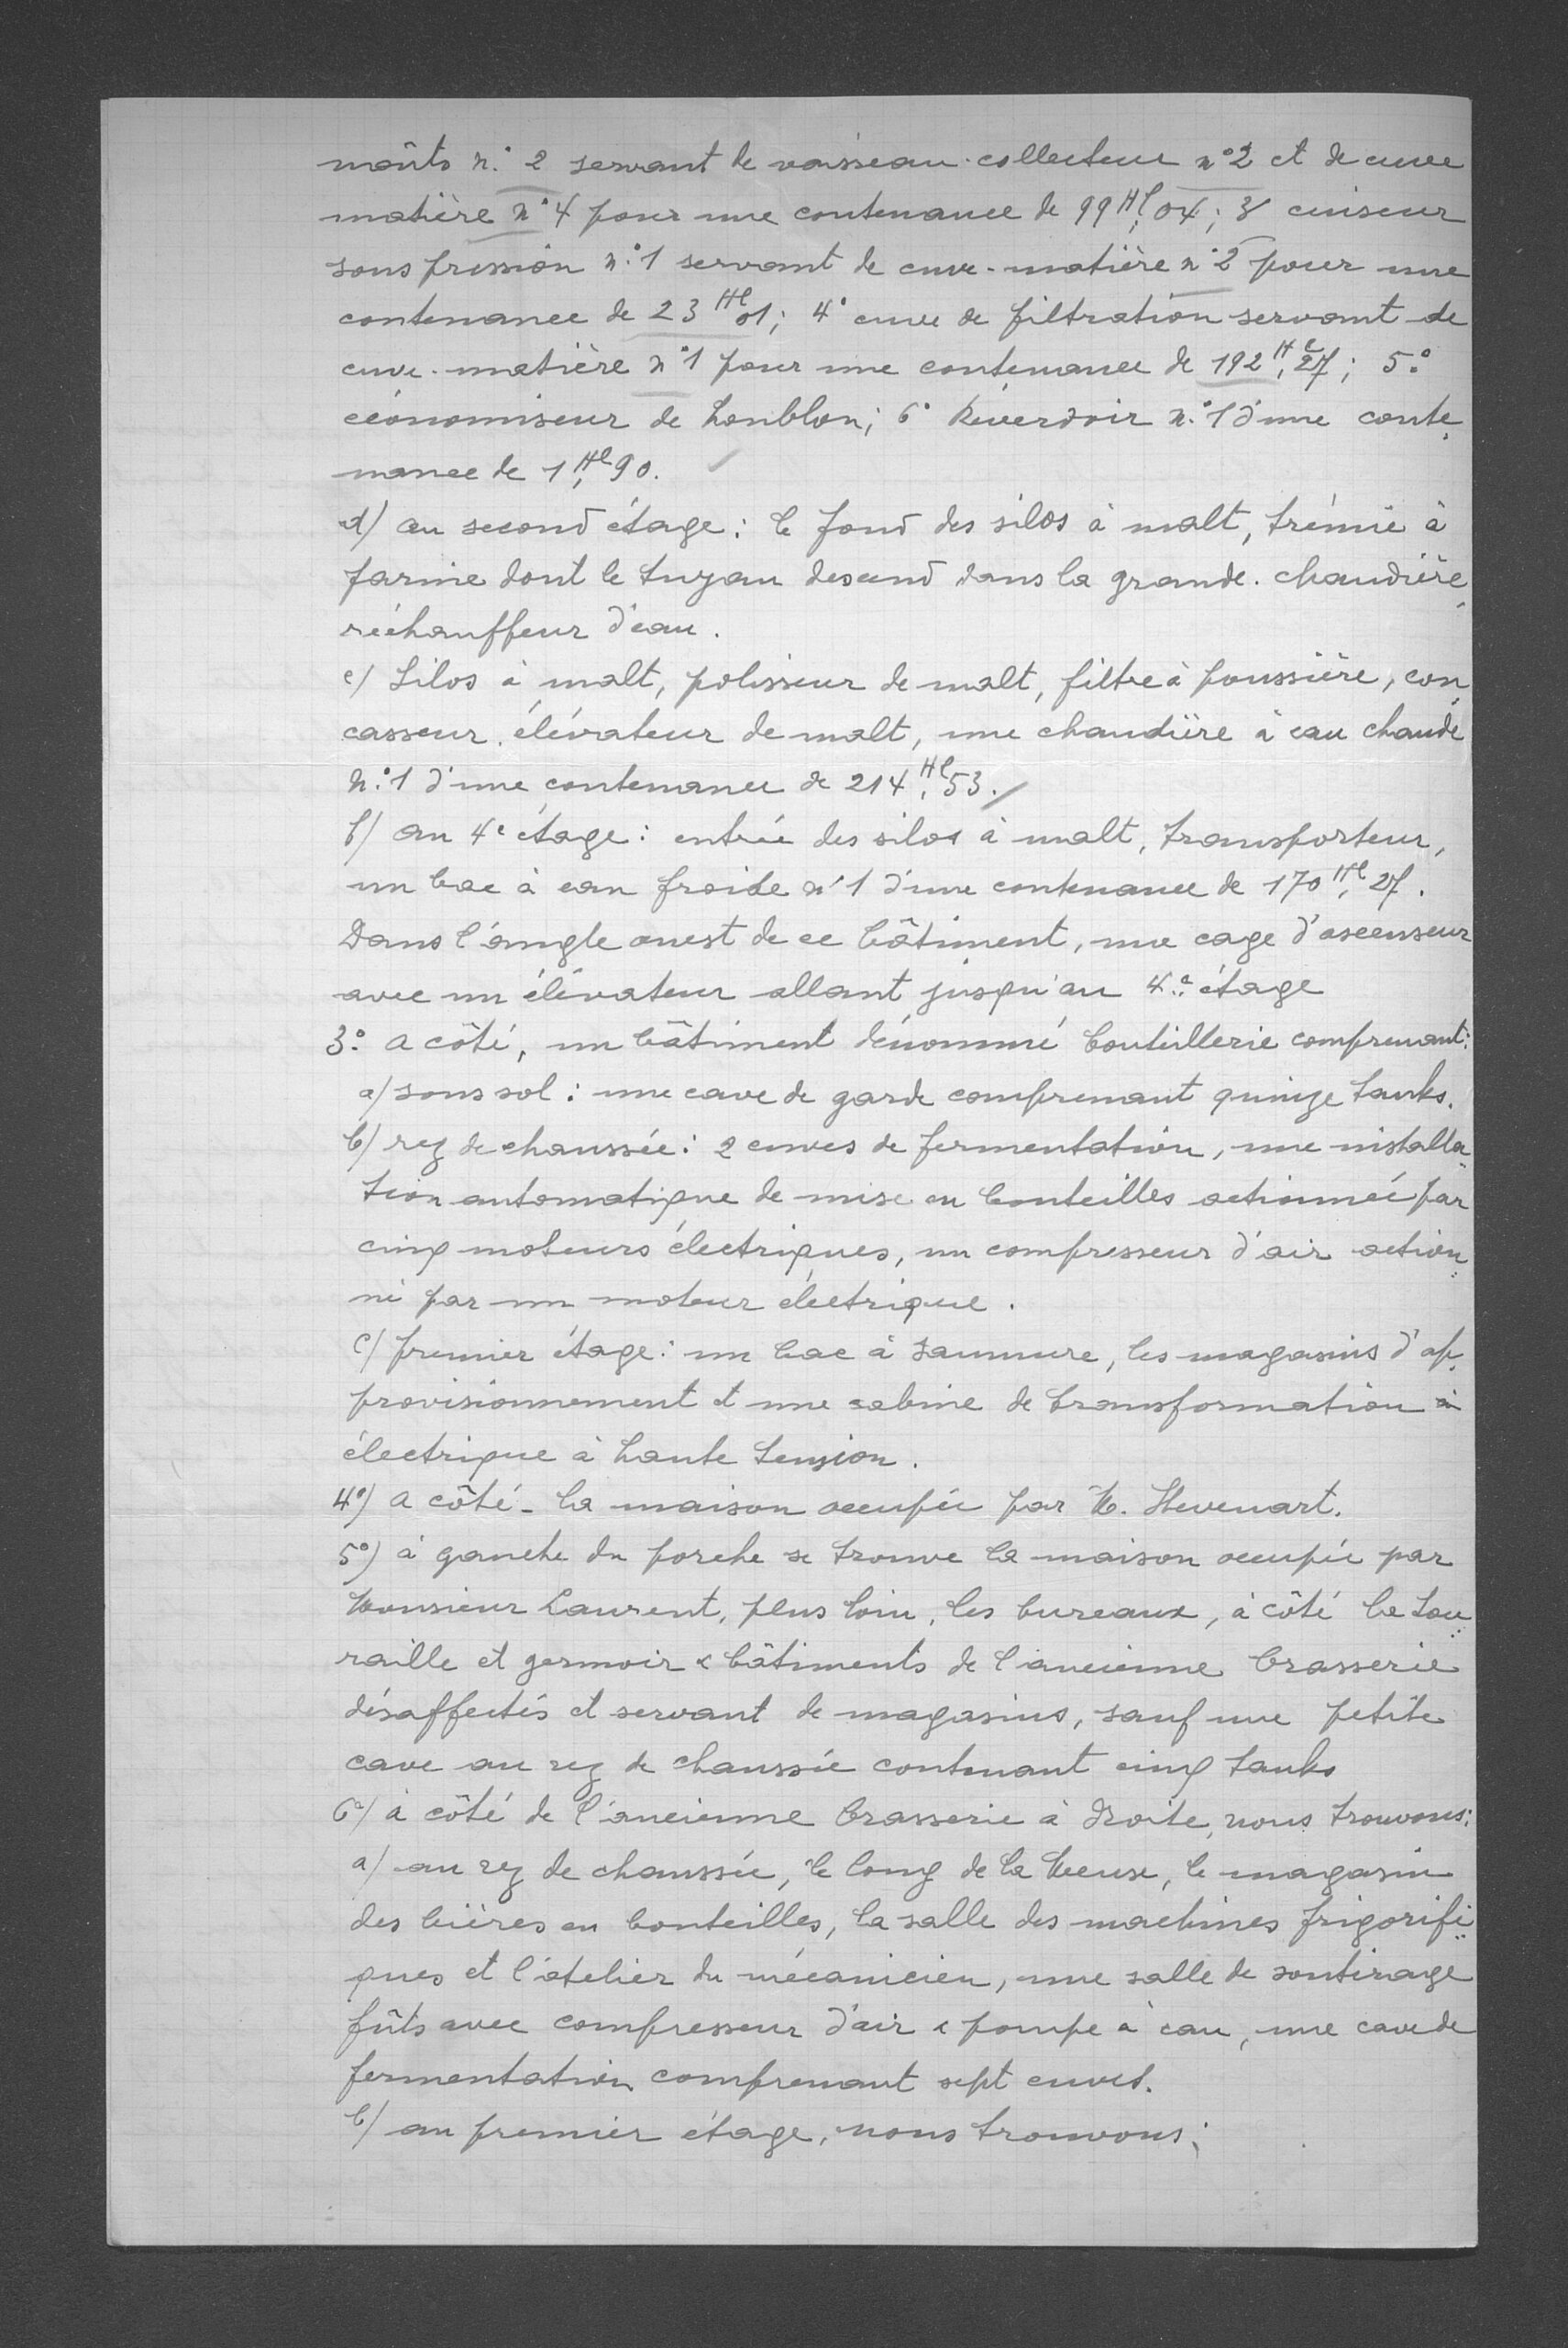 moûts n.° 2 servant de vaisseau-collecteur n° 2 et de cuve
matière n° 4 pour une contenance de 99 Hl,04; 3° cuiseur
sous pression n.° 1 servant de cuve-matière n° 2 pour une
contenance de 23 Hl,01; 4° cuve de filtration servant de
cuve-matière n° 1 pour une contenance de 192 Hl,27; 5°
économiseur de houblon; 6° Reverdoir n.° 1 d'une conte
nance de 1 Hl,90.
d/ au second étage: le fond des silos à malt, trémie à
farine dont le tuyau descend dans la grande chaudière,
réchauffeur d'eau.
e/ Silos à malt, polisseur de malt, filtre à poussière, con
casseur, élévateur de malt, une chaudière à eau chaude
N.° 1 d'une contenance de 214 Hl,53.
f/ au 4e étage: entrée des silos à malt, transporteur,
un bac à eau froide n° 1 d'une contenance de 170 Hl,27.
Dans l'angle ouest de ce bâtiment, une cage d'ascenseur
avec un élévateur allant jusqu'au 4e étage
3° a côté, un bâtiment dénommé bouteillerie comprenant:
a/ sous sol: une cave de garde comprenant quinze tanks.
b/ rez de chaussée: 2 cuves de fermentation, une installa
tion automatique de mise en bouteilles actionnée par
cinq moteurs électriques, un compresseur d'air action
né par un moteur électrique.
c/ premier étage: un bac à saumure, les magasins d'ap
provisionnement et une cabine de transformation à
électrique à haute tension.
4°) a côté - la maison occupée par M. Stevenart.
5°) à gauche du porche se trouve la maison occupée par
Monsieur Laurent, plus loin, les bureaux, à côté la tou
raille et germoir & bâtiments de l'ancienne brasserie
désaffectés et servant de magasins, sauf une petite
cave au rez de chaussée contenant cinq tanks
6°/ à côté de l'ancienne brasserie à droite, nous trouvons:
a/ au rez de chaussée, le long de la Meuse, le magasin
des bières en bouteilles, la salle des machines frigorifi
ques et l'atelier du mécanicien, une salle de soutirage
fûts avec compresseur d'air & pompe à eau, une cave de
fermentation comprenant sept cuves.
b/ au premier étage, nous trouvons: